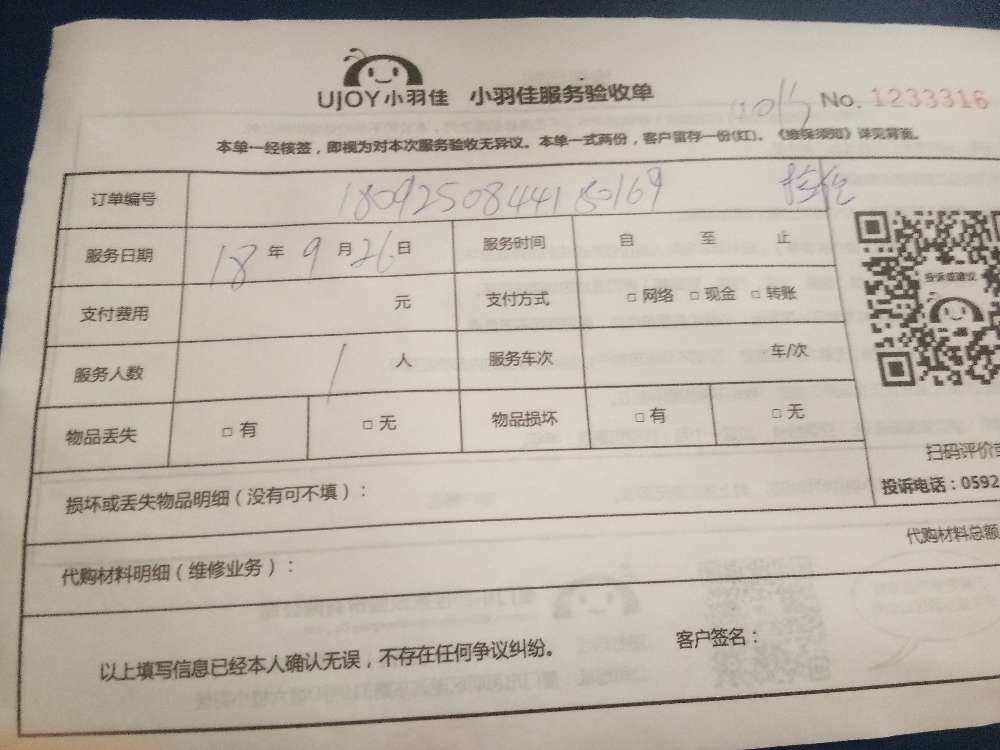 UJOY小羽佳 小羽佳服务验收单 No. 1233316
本单一经核签，即视为对本次服务验收无异议。本单一式两份，客户留存一份(红)。《维保须知》详见背面。
订单编号 1809250844180169
服务日期 18 年 9 月 26 日 服务时间 自 至 止
投诉或建议
支付费用 元 支付方式 □ 网络 □ 现金 □ 转账
服务人数 1 人 服务车次 车/次
物品丢失 □ 有 □ 无 物品损坏 □ 有 □ 无
扫码评价
损坏或丢失物品明细（没有可不填）：
投诉电话：0592
代购材料明细（维修业务）： 代购材料总额
以上填写信息已经本人确认无误，不存在任何争议纠纷。 客户签名：